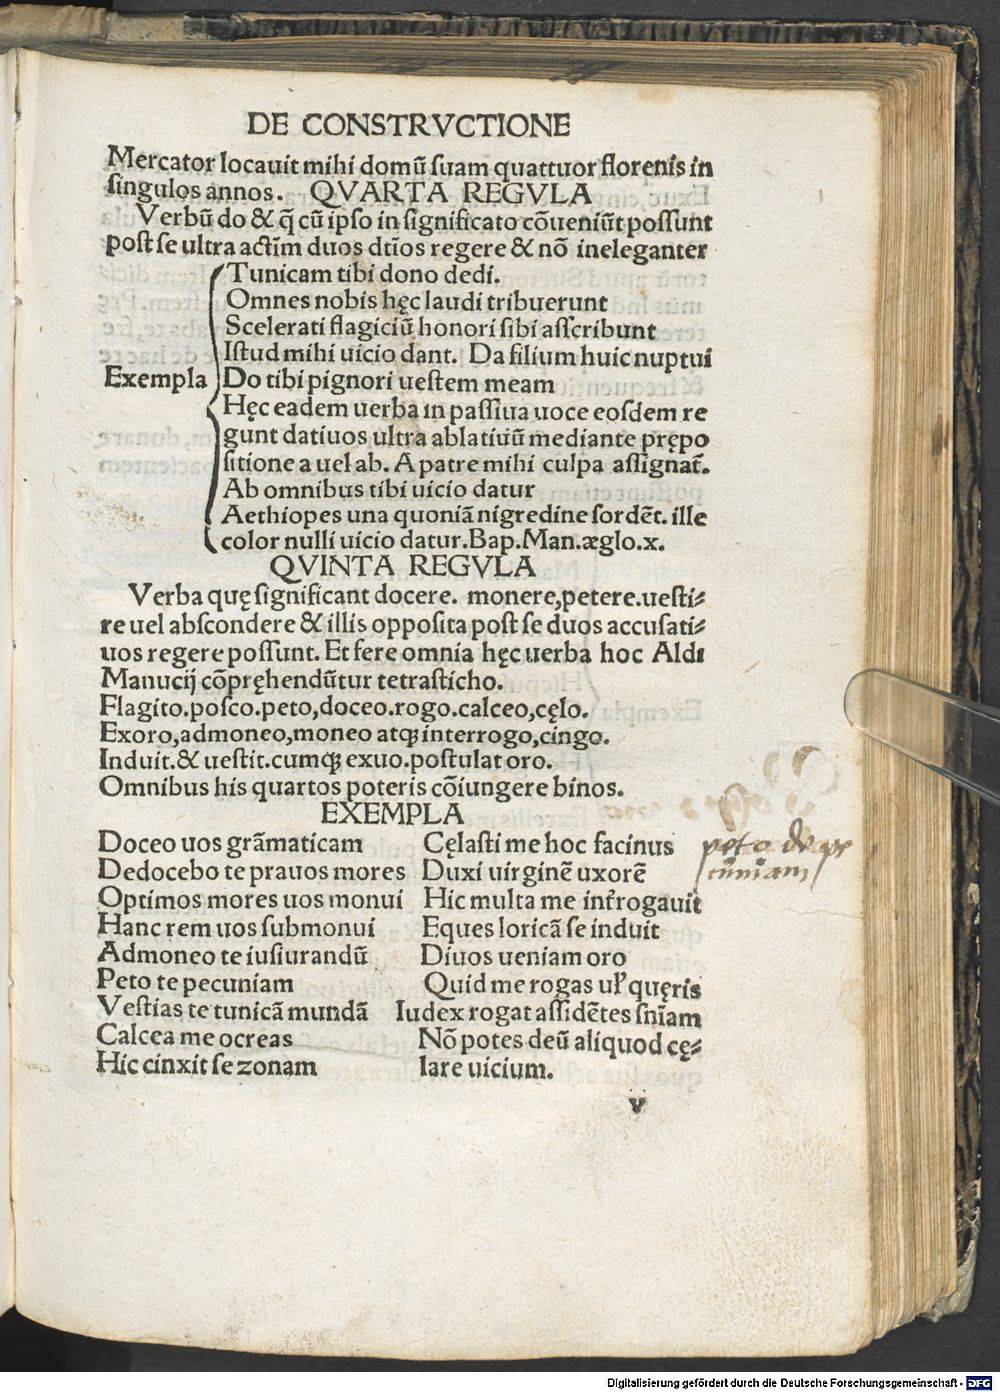 DE CONSTRVCTIONE
Mercator locauit mihi domū suam quattuor florenis in
singulos annos. QVARTA REGVLA
Verbū do & q̄ cū ipso in significato cōueniūt possunt
post se ultra actīm duos dtīos regere & nō ineleganter
Tunicam tibi dono dedi.
Omnes nobis hęc laudi tribuerunt
Scelerati flagiciū honori sibi asscribunt
Istud mihi uicio dant. Da filium huic nuptui
Exempla Do tibi pignori uestem meam
Hęc eadem uerba in passiua uoce eosdem re
gunt datiuos ultra ablatiuū mediante prępo
sitione a uel ab. A patre mihi culpa assignat̄.
Ab omnibus tibi uicio datur
Aethiopes una quoniā nigredine sordēt. ille
color nulli uicio datur. Bap. Man. æglo. x.
QVINTA REGVLA
Verba quę significant docere. monere, petere. uesti⸗
re uel abscondere & illis opposita post se duos accusati⸗
uos regere possunt. Et fere omnia hęc uerba hoc Aldi
Manucij cōpręhendūtur tetrasticho.
Flagito. posco. peto, doceo. rogo. calceo, cęlo.
Exoro, admoneo, moneo atqꝫ interrogo, cingo.
Induit. & uestit. cumqꝫ exuo. postulat oro.
Omnibus his quartos poteris cōiungere binos.
EXEMPLA
Doceo uos grāmaticam
Dedocebo te prauos mores
Optimos mores uos monui
Hanc rem uos submonui
Admoneo te iusiurandū
Peto te pecuniam
Vestias te tunicā mundā
Calcea me ocreas
Hic cinxit se zonam
Cęlasti me hoc facinus
Duxi uirginē uxorē
Hic multa me int̄rogauit
Eques loricā se induit
Diuos ueniam oro
Quid me rogas ul' quęris
Iudex rogat assidētes sn̄iam
Nō potes deū aliquod cę⸗
lare uicium.
peto de pe
cuniam
v
Digitalisierung gefördert durch die Deutsche Forschungsgemeinschaft - DFG